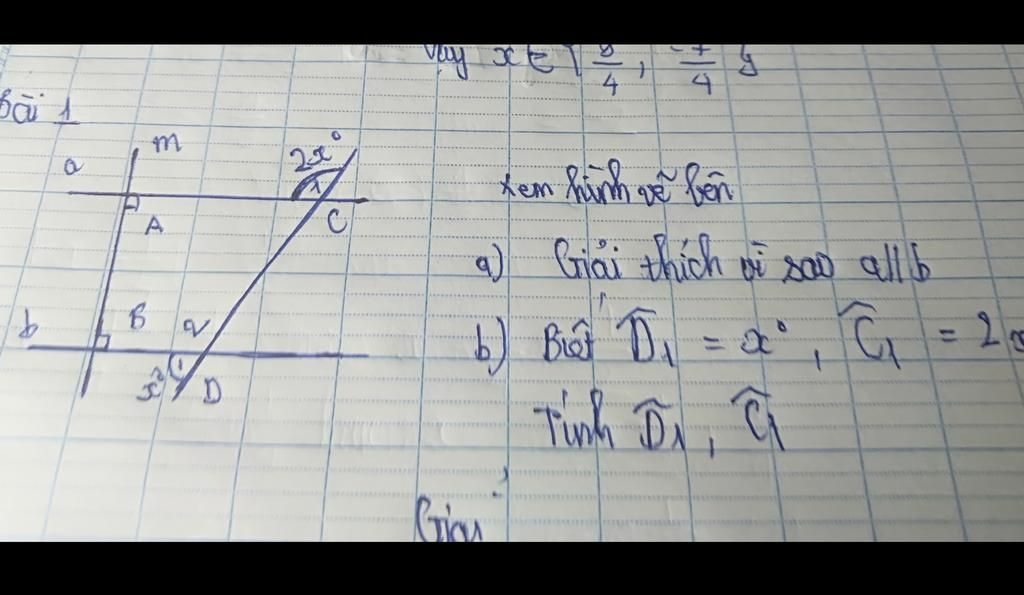 Vậy x ∈ { 8/4 , -7/4 }
Bài 1
m
2x°
a
1
A
C
b
B
2
1
x°
D
Xem hình vẽ bên
a) Giải thích vì sao a//b
b) Biết D̂1 = x°, Ĉ1 = 2x
Tính D̂1, Ĉ1
Giải